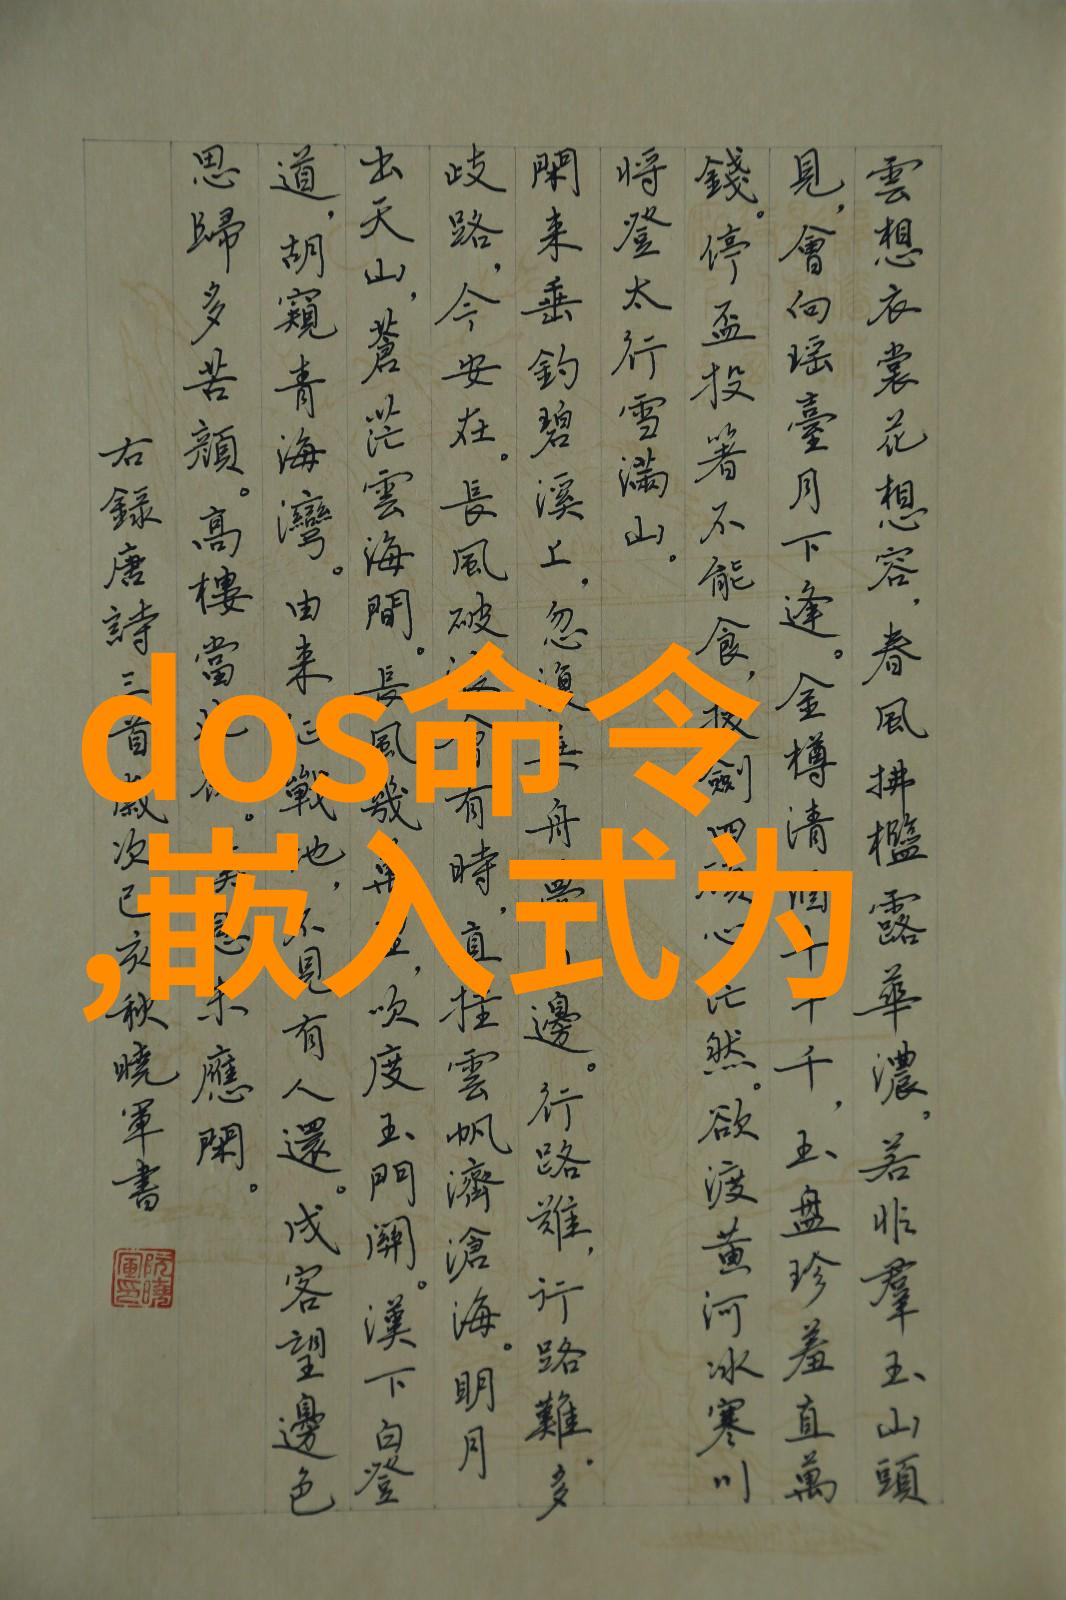 雲想衣裳花想容，春風拂檻露華濃。若非羣玉山頭
見，會向瑶臺月下逢。金樽清酒斗十千，玉盘珍羞直萬
錢。停盃投箸不能食，拔劍四顧心茫然。欲渡黄河冰寒川
将登太行雪滿山。
閑来垂釣碧溪上，忽復乘舟夢日邊。行路難，行路難。多
歧路，今安在。長風破浪會有時，直挂雲帆濟滄海。明月
出天山，蒼茫雲海間。長風幾萬里，吹度玉門關。漢下白登
道，胡窺青海灣。由来征戰地，不見有人還。戍客望邊色
思歸多苦顔。高樓當此夜。嘆息未應閑。
右録唐詩三首歲次己亥秋曉軍書
阮曉軍印
dos命令
,嵌入式为